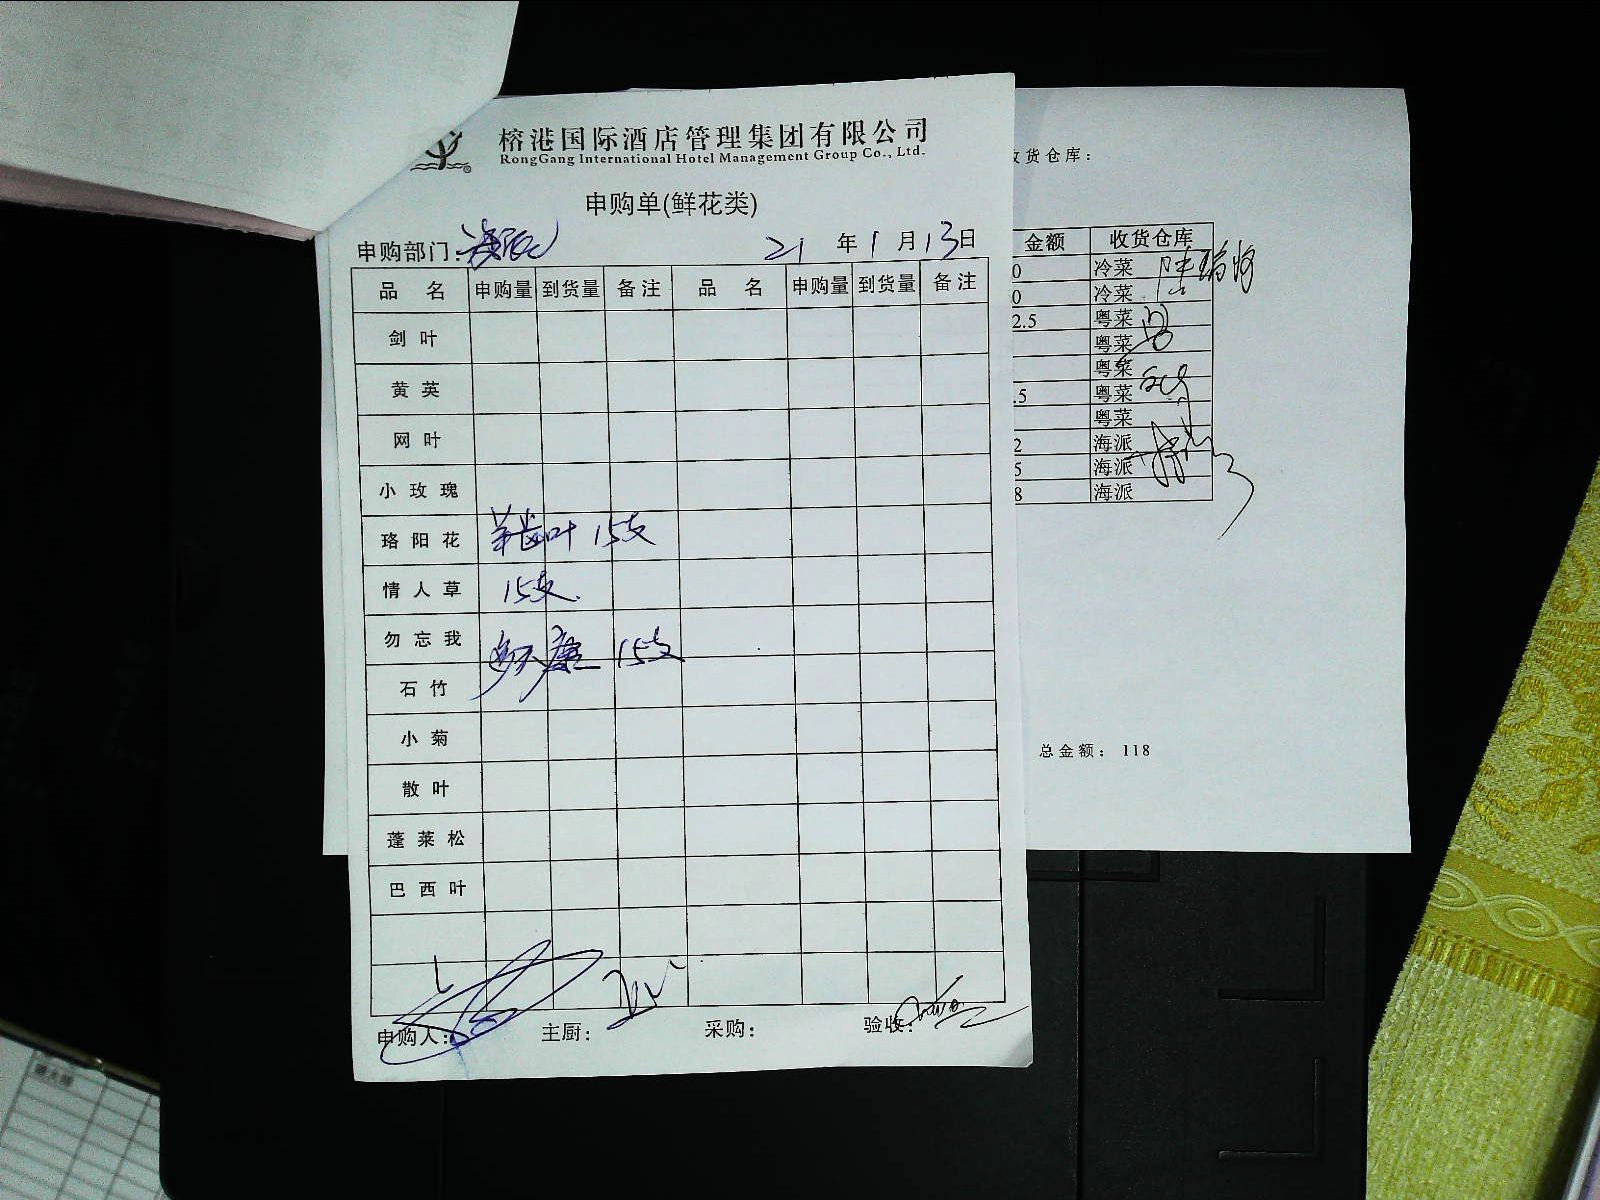 榕港国际酒店管理集团有限公司
RongGang International Hotel Management Group Co., Ltd.
申购单(鲜花类)
申购部门:
21 年 1 月 13 日
品 名 申购量 到货量 备注 品 名 申购量 到货量 备注
剑叶
黄英
网叶
小玫瑰
珞阳花 叶 15支
情人草 15支
勿忘我 15支
石竹
小菊
散叶
蓬莱松
巴西叶
申购人: 主厨: 采购: 验收:
收货仓库:
金额 收货仓库
0 冷菜
0 冷菜
2.5 粤菜
粤菜
粤菜
.5 粤菜
粤菜
2 海派
5 海派
8 海派
总金额: 118